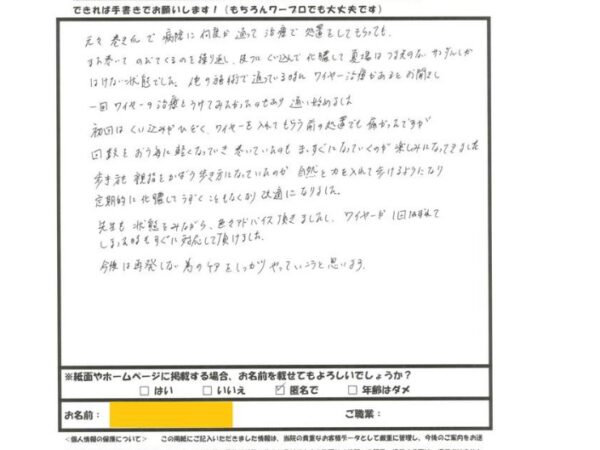 できれば手書きでお願いします！（もちろんワープロでも大丈夫です）
元々巻きづめで病院に何度か通って治療で処置をしてもらっても、
また巻いてのびてくるのを繰り返し、皮フにくい込んで化膿して夏場はつま先のないサンダルしか
はけない状態でした。他の施術で通っている時にワイヤー治療があるとお聞きし
一回ワイヤーの治療をうけてみたかったのもあり通い始めました
初回はくい込みがひどく、ワイヤーを入れてもらう前の処置でも痛かったですが
回数をおう毎に軽くなっていき巻いていたのもまっすぐになっていくのが楽しみになってきました
歩き方も親指をかばう歩き方になっていたのが自然と力を入れて歩けるようになり
定期的に化膿してうずくこともなくなり快適になりました。
先生も状態をみながら、色々アドバイス頂きましたし、ワイヤーが1回はずれて
しまった時もすぐに対応して頂けました。
今後は再発しない為のケアをしっかりやっていこうと思います。
※紙面やホームページに掲載する場合、お名前を載せてもよろしいでしょうか？
□ はい □ いいえ ☑ 匿名で □ 年齢はダメ
お名前： ご職業：
＜個人情報の保護について＞ この用紙にご記入いただきました情報は、当院の貴重なお客様データとして厳重に管理し、今後のご案内をお送